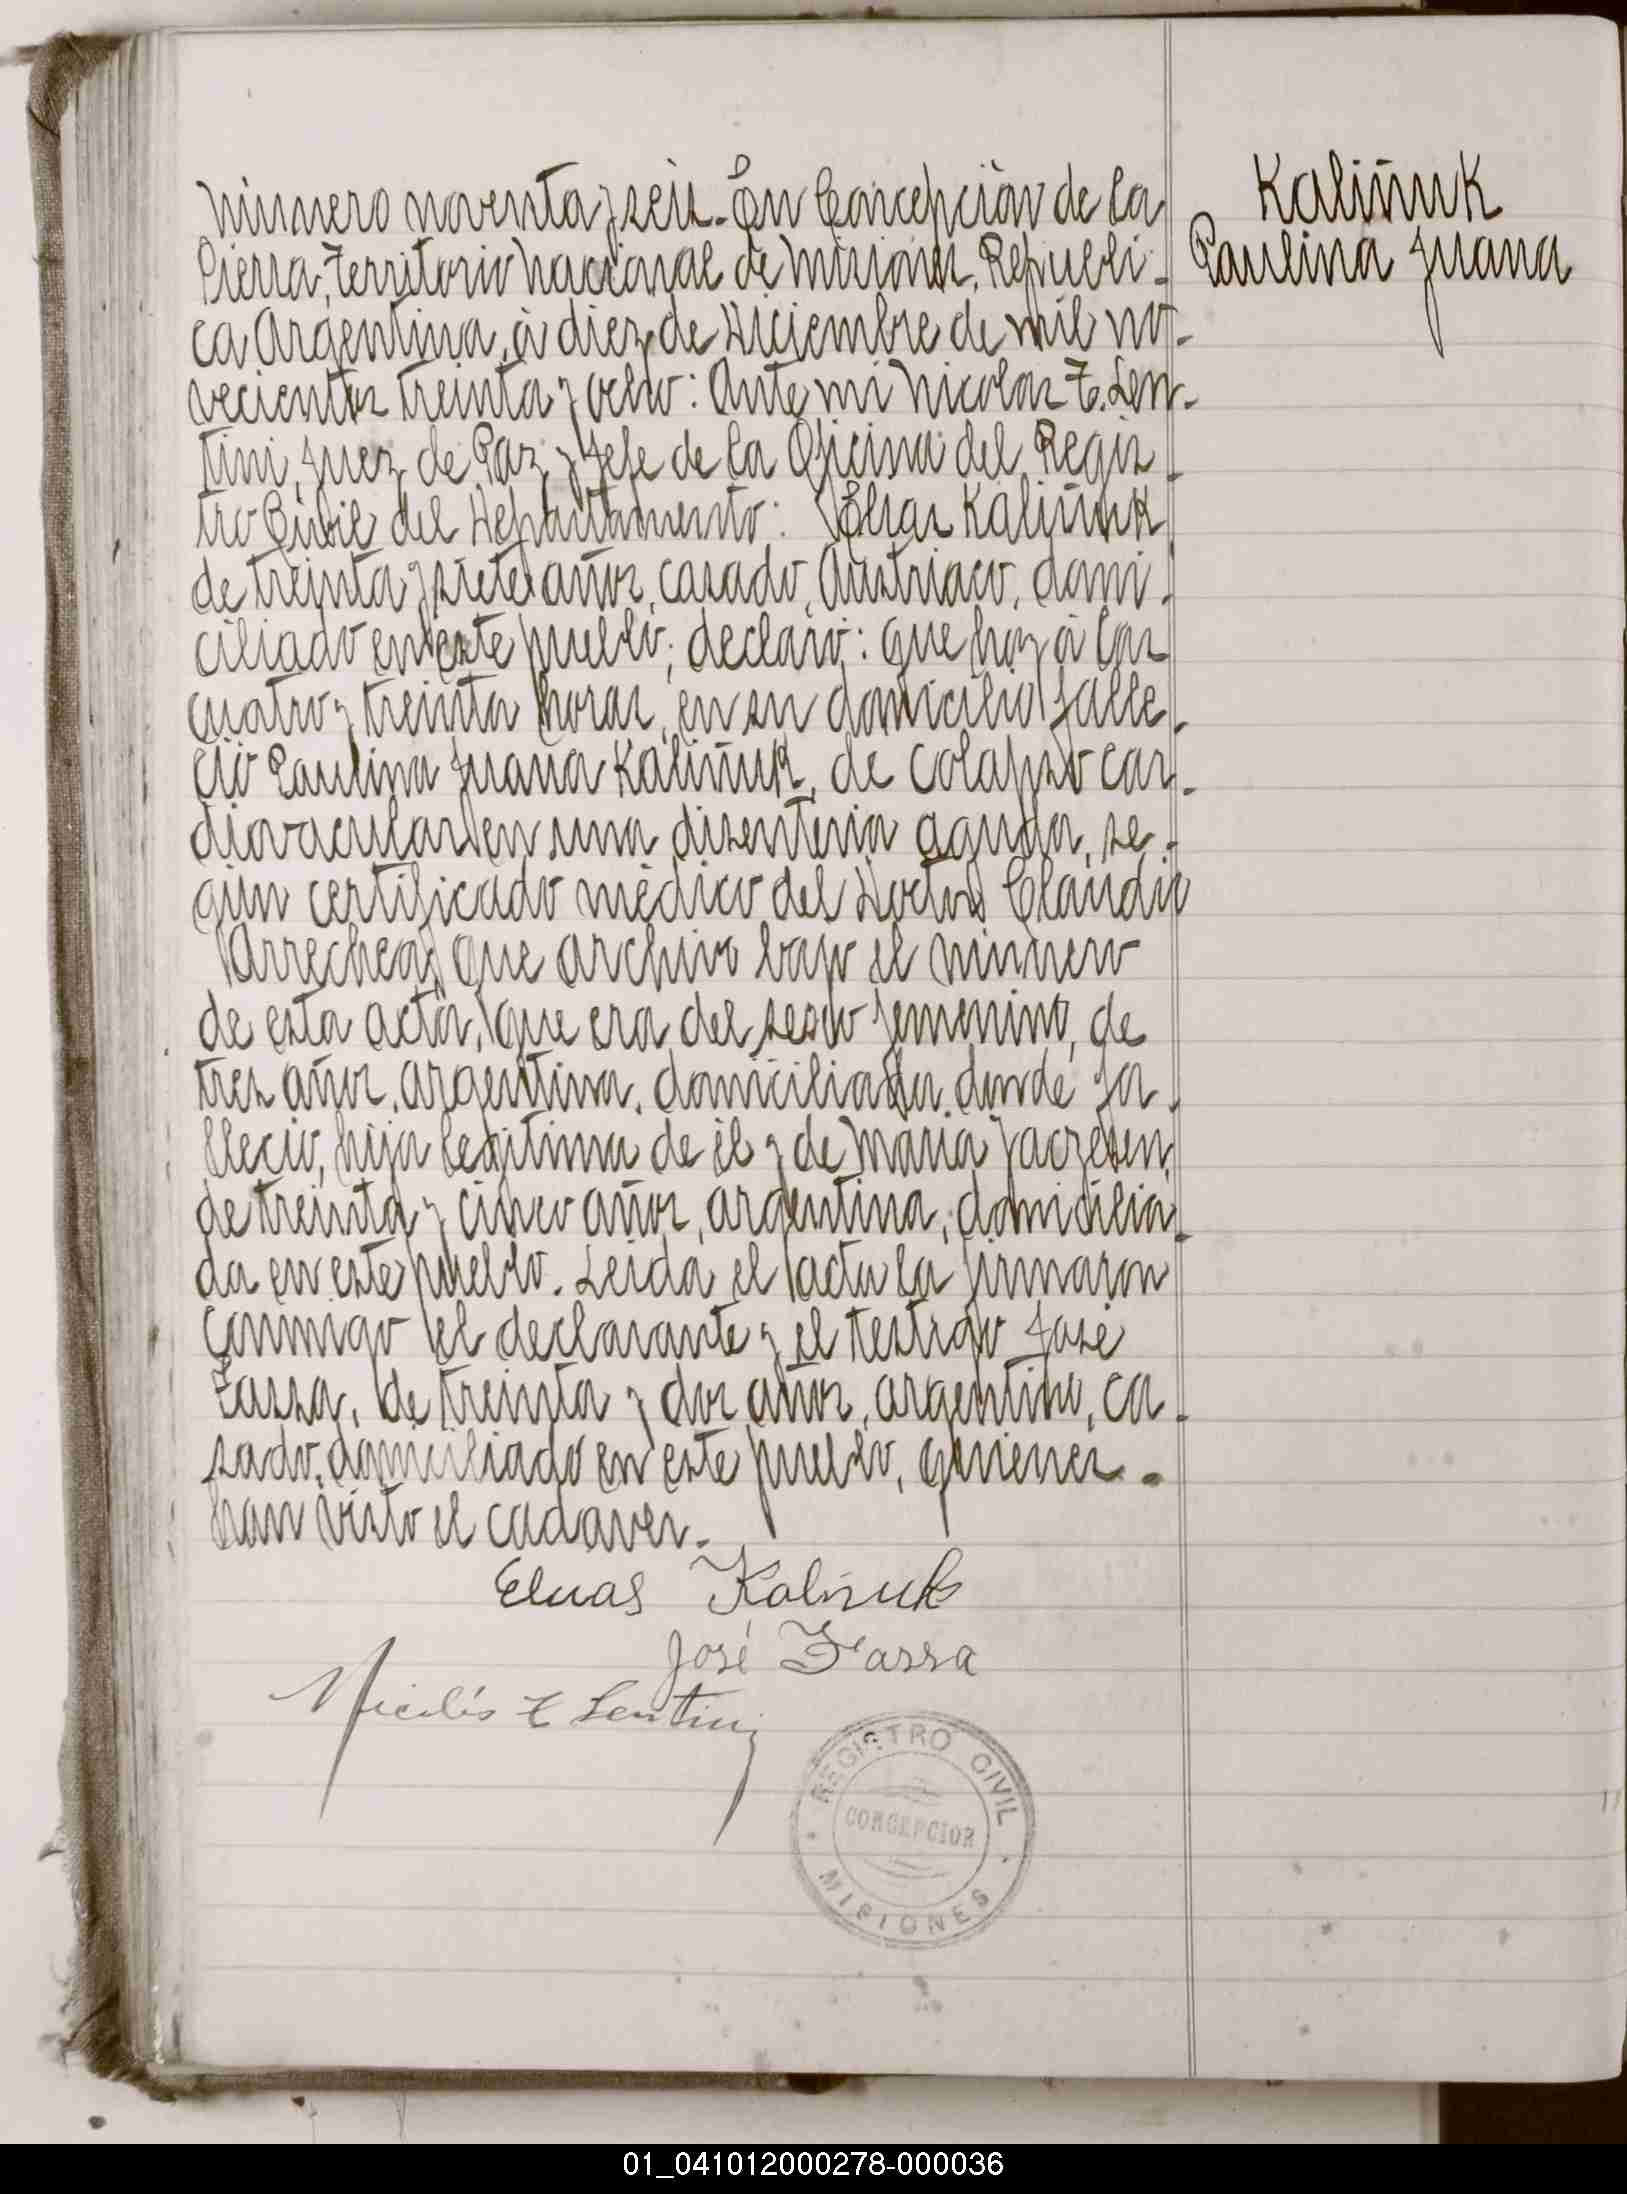 Número noventa y seis.- En Concepción de la
Sierra, Territorio Nacional de Misiones, Republi-
ca Argentina, à diez de Diciembre de mil no-
vecientos treinta y ocho: Ante mi Nicolas T. Len-
tini, Juez de Paz y Jefe de la Oficina del Regis-
tro Civil del Departamento: Elias Kaliñuk
de treinta y siete años, casado, Austriaco, domi-
ciliado en este pueblo; declaró: que hoy à las
cuatro y treinta horas, en su domicilio falle-
ció Paulina Juana Kaliñuk, de colapso car-
diovacular en una disenteria aguda, se-
gún certificado mèdico del Doctor Claudio
Arrechea, que archivo bajo el número
de esta acta, que era del sexo femenino, de
tres años, argentina, domiciliada donde fa-
lleció, hija legitima de èl y de Maria
de treinta y cinco años, argentina, domicilia-
da en este pueblo. Leida el acta la firmaron
conmigo el declarante y el testigo José
de treinta y dos años, argentino, ca-
sado, domiciliado en este pueblo, quienes -
han visto el cadaver.-
Kaliñuk
Paulina Juana
Eluas Kaliñuk
José
Nicolás T Lentini
REGISTRO CIVIL
CONCEPCION
MISIONES
01_041012000278-000036